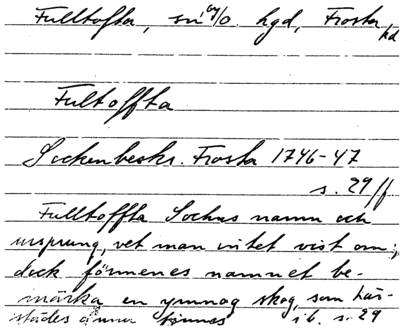 Fulltofta, sn o. hgd, Frosta hd
Fultoffta
Sockenbeskr. Frosta 1746-47
s. 29 ff
Fulltoffta Sochns namn och
ursprung, vet man intet vist om;
dock förmenes namnet be-
märka en ymnog skog, som här-
städes ännu finnes ib. s. 29